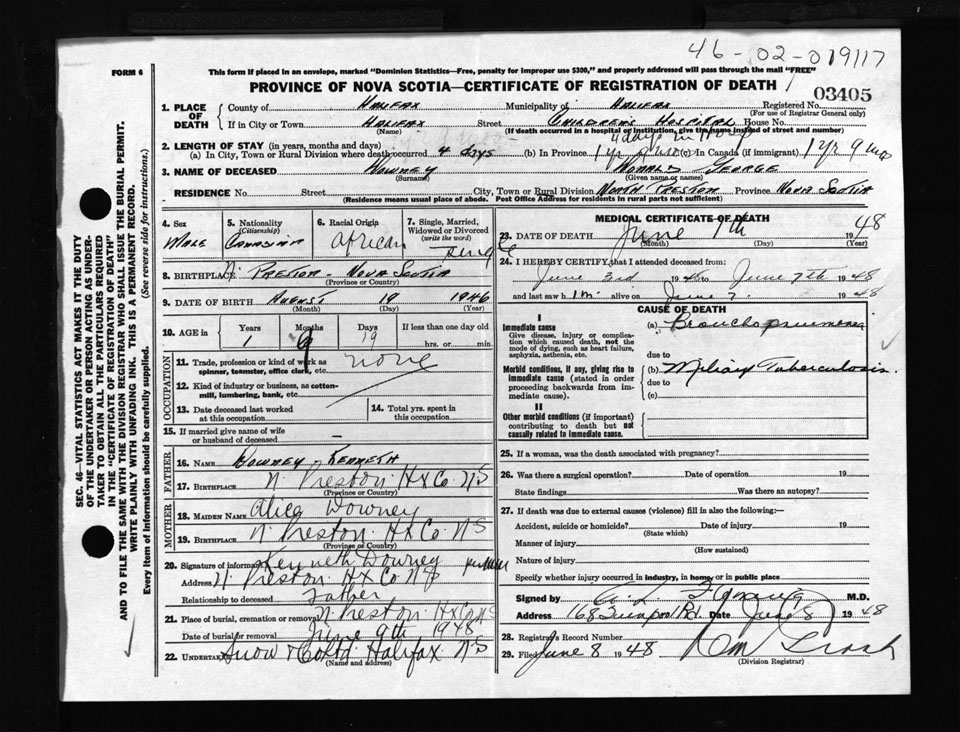 46-02-019117
FORM 6
This form if placed in an envelope, marked "Dominion Statistics—Free, penalty for improper use $300," and properly addressed will pass through the mail "FREE"
PROVINCE OF NOVA SCOTIA—CERTIFICATE OF REGISTRATION OF DEATH
03405
1. PLACE OF DEATH County of Halifax Municipality of Halifax Registered No.
(For use of Registrar General only)
If in City or Town Halifax Street Children's Hospital House No.
(Name) (If death occurred in a hospital or institution, give the name instead of street and number)
4 days in Hosp
2. LENGTH OF STAY (in years, months and days)
(a) In City, Town or Rural Division where death occurred 4 days (b) In Province 1 yr 9 mo (c) In Canada (if immigrant) 1 yr 9 mo
3. NAME OF DECEASED Downey Donald George
(Surname) Given name or names)
RESIDENCE No. Street City, Town or Rural Division North Preston Province Nova Scotia
(Residence means usual place of abode. Post Office Address for residents in rural parts not sufficient)
4. Sex Male
5. Nationality (Citizenship) Canadian
6. Racial Origin African
7. Single, Married, Widowed or Divorced (write the word) Single
8. BIRTHPLACE N. Preston - Nova Scotia
(Province or Country)
9. DATE OF BIRTH August 19 1946
(Month) (Day) (Year)
10. AGE in Years Months Days If less than one day old
1 9 19 hrs. or min.
OCCUPATION
11. Trade, profession or kind of work as spinner, teamster, office clerk, etc. none
12. Kind of industry or business, as cotton-mill, lumbering, bank, etc.
13. Date deceased last worked at this occupation
14. Total yrs. spent in this occupation
15. If married give name of wife or husband of deceased —
FATHER
16. NAME Downey - Kenneth
17. BIRTHPLACE N Preston Hx Co NS
(Province or Country)
MOTHER
18. MAIDEN NAME Alice Downey
19. BIRTHPLACE N Preston Hx Co NS
(Province or Country)
20. Signature of informant Kenneth Downey
Address N Preston Hx Co NS
Relationship to deceased Father
21. Place of burial, cremation or removal N Preston Hx Co NS
Date of burial or removal June 9th 1948
22. Undertaker Snow & Co Ltd. Halifax NS
(Name and address)
MEDICAL CERTIFICATE OF DEATH
23. DATE OF DEATH June 7th 1948
(Month) (Day) (Year)
24. I HEREBY CERTIFY, that I attended deceased from:
June 3rd 1948 to June 7th 1948
and last saw him alive on June 7. 1948
CAUSE OF DEATH
I
Immediate cause
Give disease, injury or complication which caused death, not the mode of dying, such as heart failure, asphyxia, asthenia, etc.
(a) Bronchopneumonia
due to
Morbid conditions, if any, giving rise to immediate cause (stated in order proceeding backwards from immediate cause).
(b) Miliary Tuberculosis.
due to
(c)
II
Other morbid conditions (if important) contributing to death but not causally related to immediate cause.
25. If a woman, was the death associated with pregnancy?
26. Was there a surgical operation? Date of operation 19
State findings Was there an autopsy?
27. If death was due to external causes (violence) fill in also the following:—
Accident, suicide or homicide? Date of injury 19
(State which)
Manner of injury
(How sustained)
Nature of injury
Specify whether injury occurred in industry, in home, or in public place
Signed by M.D.
Address 168 Date June 8 1948
28. Registrar's Record Number
29. Filed June 8 1948
(Division Registrar)
SEC. 46—VITAL STATISTICS ACT MAKES IT THE DUTY OF THE UNDERTAKER OR PERSON ACTING AS UNDERTAKER TO OBTAIN ALL THE PARTICULARS REQUIRED IN THE "CERTIFICATE OF REGISTRATION OF DEATH"
AND TO FILE THE SAME WITH THE DIVISION REGISTRAR WHO SHALL ISSUE THE BURIAL PERMIT.
WRITE PLAINLY WITH UNFADING INK. THIS IS A PERMANENT RECORD.
Every item of Information should be carefully supplied. (See reverse side for instructions.)